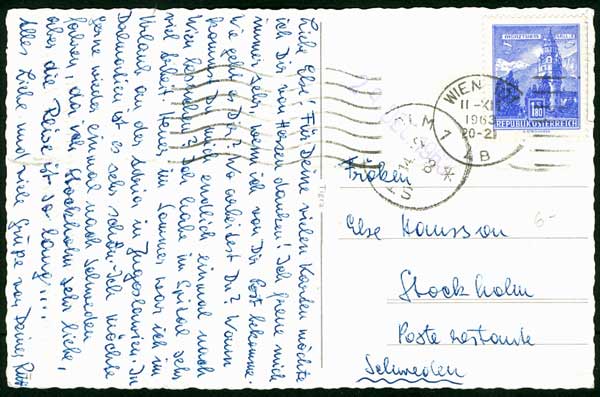 Liebe Else! Für Deine vielen Karten möchte
ich Dir von Herzen danken! Ich freue mich
immer sehr, wenn ich von Dir Post bekomme.
Wie geht es Dir? Wo arbeitest Du? Wann
kommst Du mich endlich einmal nach
Wien besuchen? Ich habe im Spital sehr
viel Arbeit. Heuer im Sommer war ich im
Urlaub an der Adria in Jugoslawien. In
Dalmatien ist es sehr schön. Ich möchte
gerne wieder einmal nach Schweden
fahren, da ich Stockholm sehr liebe,
aber die Reise ist so lang....
Alles Liebe und viele Grüße von Deiner
MÜNZTURM HALL I. T.
1.80
REPUBLIK ÖSTERREICH
WIEN
11-XI
1963
20-2
B
OLM 1
Fröken
Else
Stockholm
Poste restante
Schweden
6-